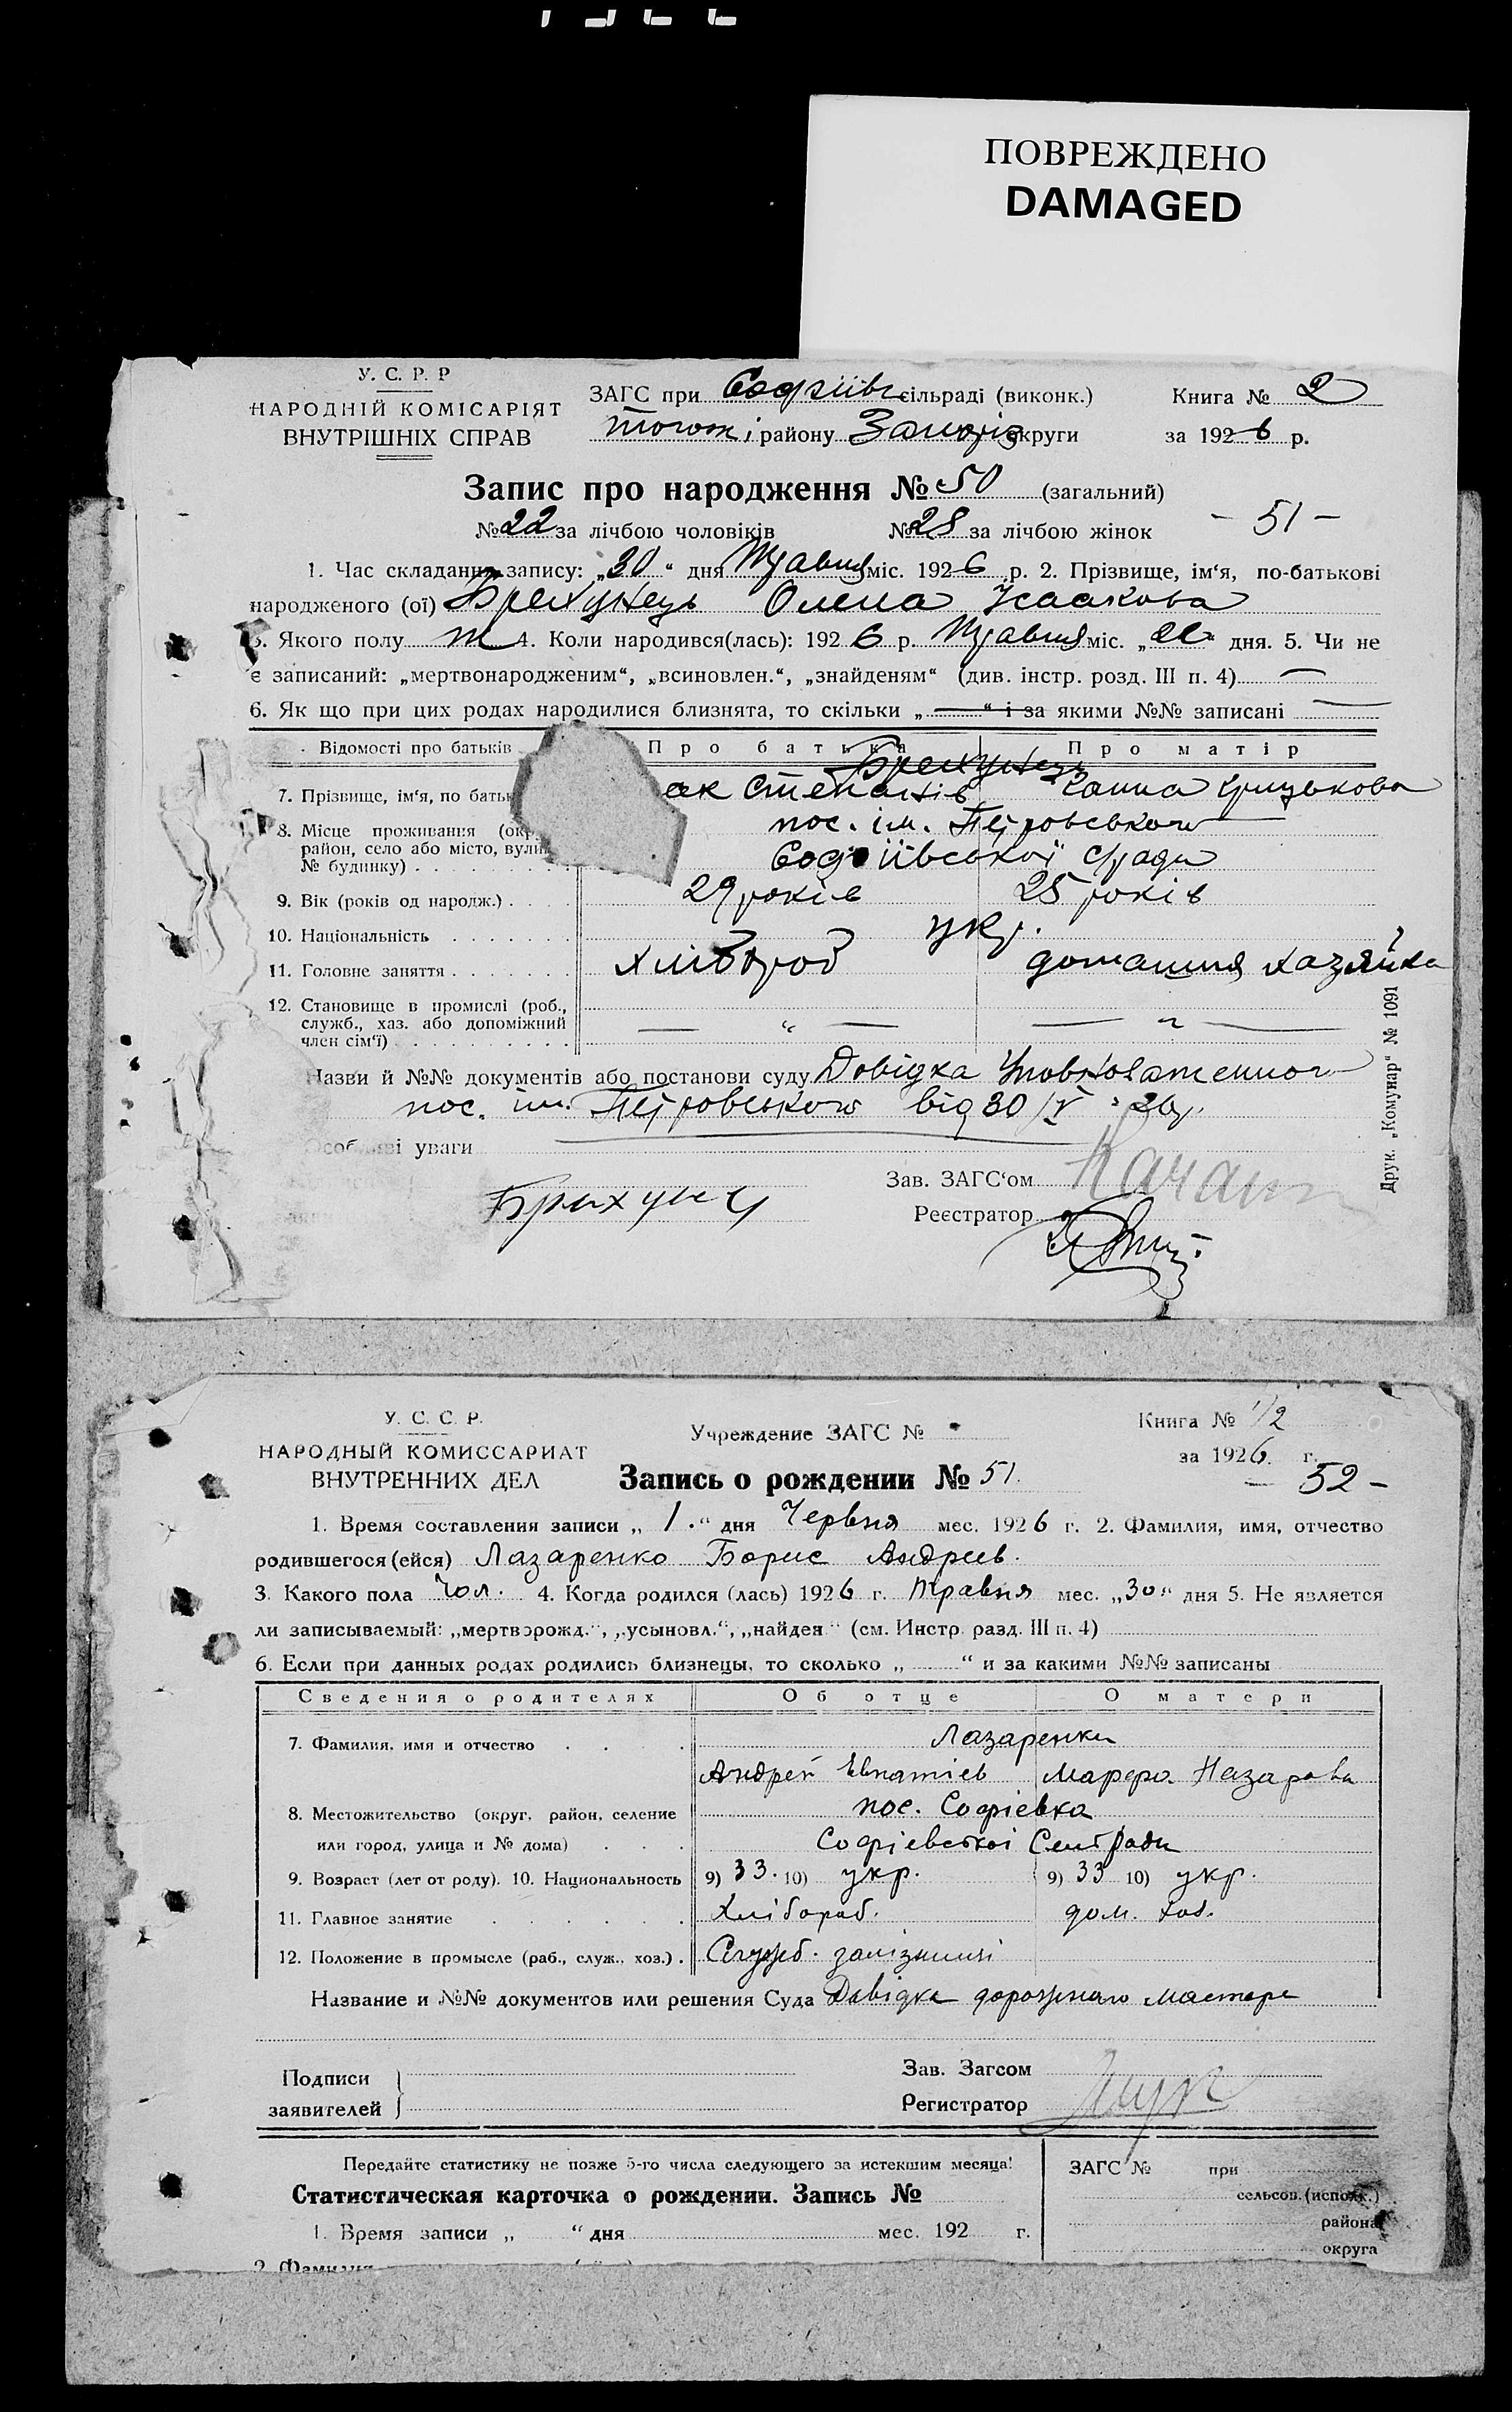 ПОВРЕЖДЕНО
DAMAGED
У. С. Р. Р
НАРОДНІЙ КОМІСАРІЯТ
ВНУТРІШНІХ СПРАВ
ЗАГС при Софіївс сільраді (виконк.)
району Запоріз округи
Книга № 2
за 1926 р.
Запис про народження № 50 (загальний)
№ 22 за лічбою чоловіків № 28 за лічбою жінок
- 51 -
1. Час складання запису: „30“ дня Травня міс. 1926 р. 2. Прізвище, ім‘я, по-батькові
народженого (ої) Брехунець Олена Ісаакова
3. Якого полу 4. Коли народився(лась): 1926 р. Травня міс. „ “ дня. 5. Чи не
є записаний: „мертвонародженим“, „всиновлен.“, „знайденям“ (див. інстр. розд. III п. 4) —
6. Як що при цих родах народилися близнята, то скільки „ — “ і за якими №№ записані —
Відомості про батьків
Про батька
Про матір
Брехунець
7. Прізвище, ім‘я, по бать
ак Степанів
Ганна Грицькова
8. Місце проживання (окр
район, село або місто, вули
№ будинку)
пос. ім. Петровського
Софіївської с/ради
9. Вік (років од народж.)
29 років
25 років
10. Національність
укр.
11. Головне заняття
хлібороб
домашня хазяйка
12. Становище в промислі (роб.,
служб., хаз. або допоміжний
член сім‘ї)
— „ —
— „ —
Назви й №№ документів або постанови суду Довідка Уповноваженного
пос. ім. Петровського від 30/V 26р.
Особливі уваги
Зав. ЗАГС‘ом
Реєстратор
Друк. „Комунар“ № 1091
У. С. С. Р.
НАРОДНЫЙ КОМИССАРИАТ
ВНУТРЕННИХ ДЕЛ
Учреждение ЗАГС №
Книга № 1/2
за 1926 г.
Запись о рождении № 51.
- 52 -
1. Время составления записи „1.“ дня Червня мес. 1926 г. 2. Фамилия, имя, отчество
родившегося (ейся) Лазаренко Борис Андреев.
3. Какого пола Чол. 4. Когда родился (лась) 1926 г. Травня мес. „30“ дня 5. Не является
ли записываемый: „мертворожд.“, „усыновл.“, „найден“ (см. Инстр. разд. III п. 4)
6. Если при данных родах родились близнецы, то сколько „ “ и за какими №№ записаны
Сведения о родителях
Об отце
О матери
7. Фамилия, имя и отчество
Лазаренки
Андрей Евпатіев
Марфа Назарова
8. Местожительство (округ, район, селение
или город, улица и № дома)
пос. Софіевка
Софіевської СельРади
9. Возраст (лет от роду). 10. Национальность
9) 33. 10) укр.
9) 33 10) укр.
11. Главное занятие
Хлібороб.
дом. хоз.
12. Положение в промысле (раб., служ., хоз.).
Служб. залізниці
Название и №№ документов или решения Суда Довідка дорожнаго мастера
Подписи
заявителей
Зав. Загсом
Регистратор
Передайте статистику не позже 5-го числа следующего за истекшим месяца!
Статистическая карточка о рождении. Запись №
1. Время записи „ “ дня мес. 192 г.
2. Фамилия
ЗАГС № при
сельсов. (исполк.)
района
округа